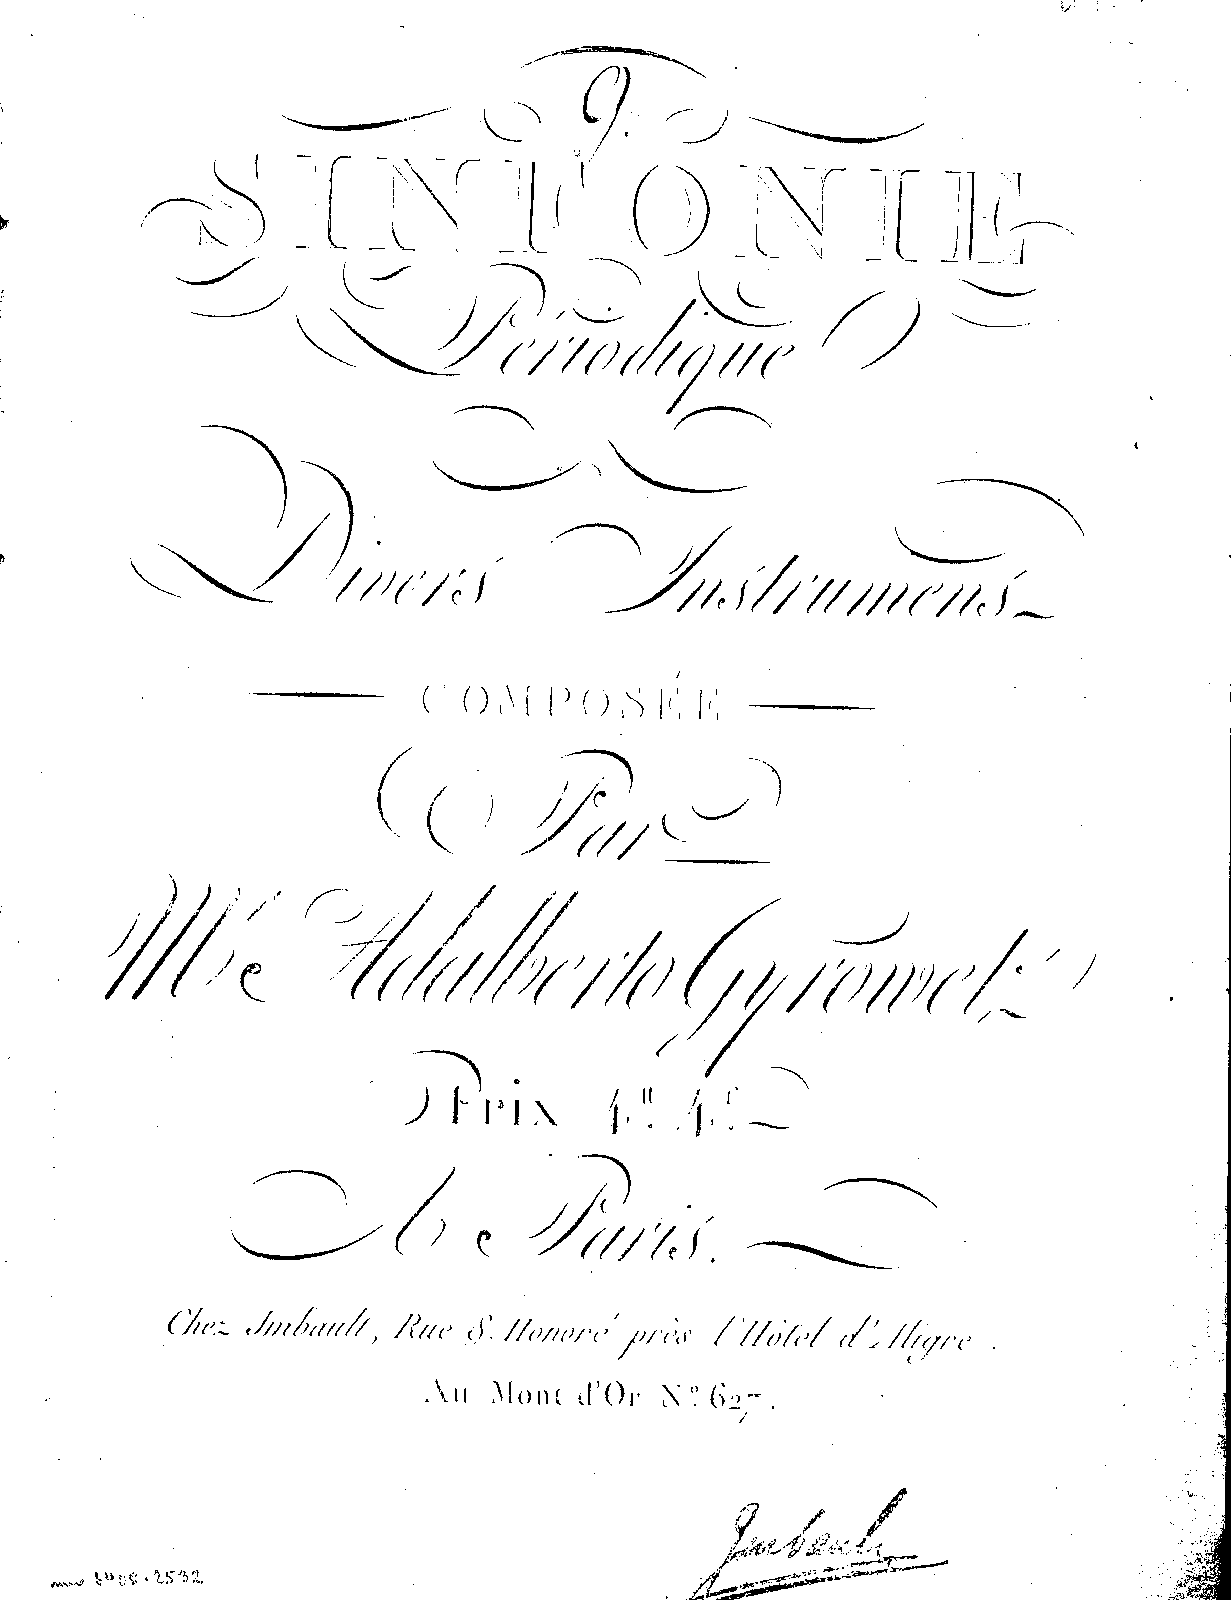 9.
SINFONIE
Périodique
A
Divers Instrumens
COMPOSÉE
Par
Adalberto Gyrowetz
Prix 4.<sup>tt</sup> 4.<sup>s</sup>
A Paris.
Chez Imbault, Rue S. Honoré près l'Hôtel d'Aligre.
Au Mont d'Or N.º 627.
Imbault